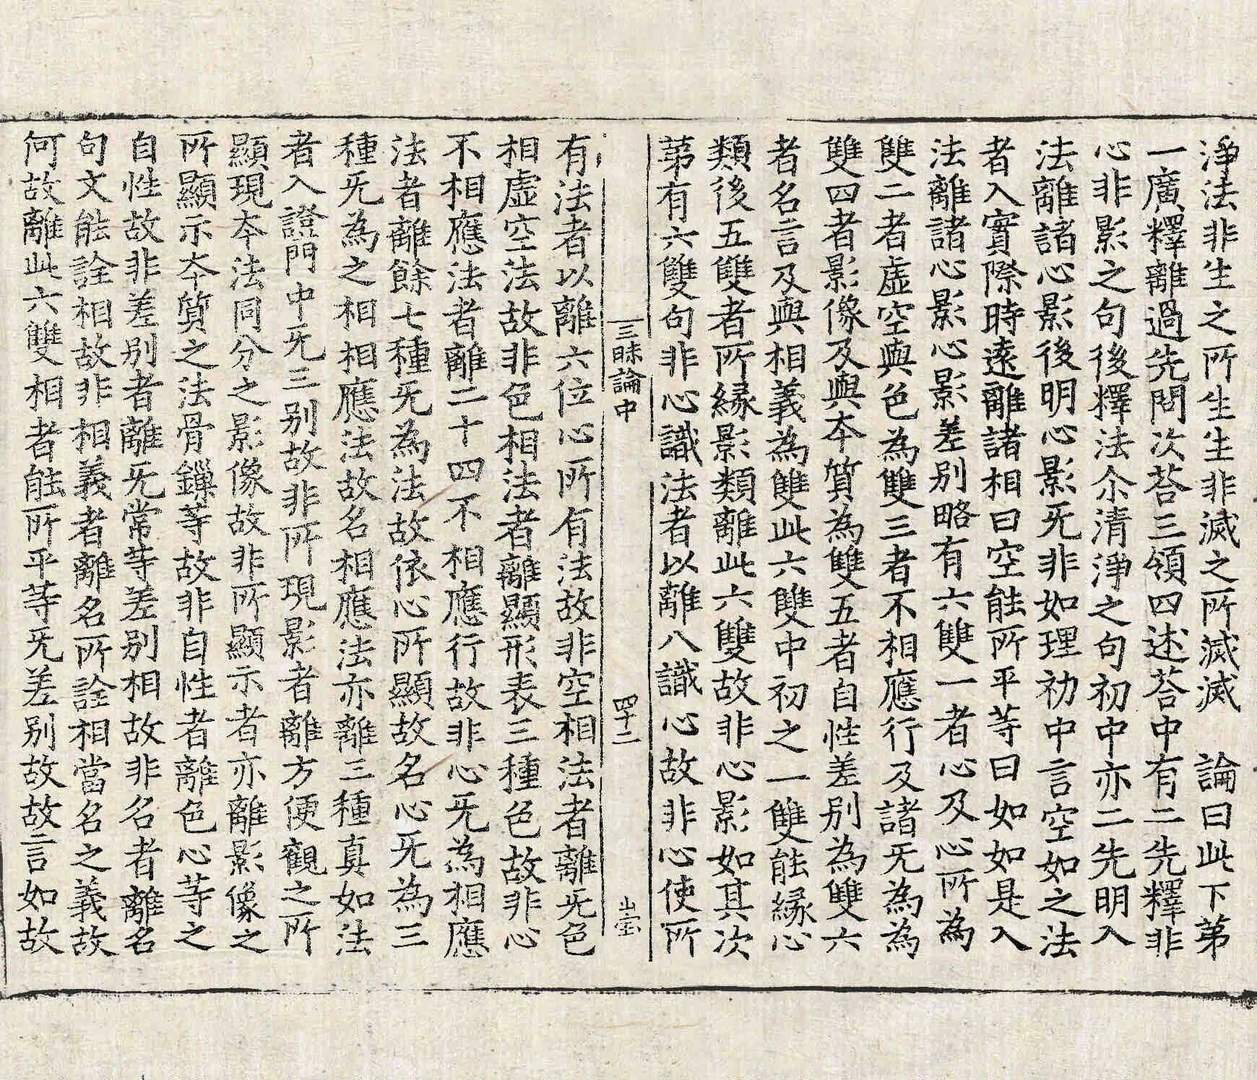 淨法非生之所生生非滅之所滅滅　論曰此下第
一廣釋離過先問次荅三領四述荅中有二先釋非
心非影之句後釋法尒清淨之句初中亦二先明入
法離諸心影後明心影旡非如理初中言空如之法
者入實際時遠離諸相曰空能所平等曰如如是入
法離諸心影心影差別略有六雙一者心及心所為
雙二者虛空與色為雙三者不相應行及諸旡為為
雙四者影像及與夲質為雙五者自性差別為雙六
者名言及與相義為雙此六雙中初之一雙能緣心
類後五雙者所緣影類離此六雙故非心影如其次
苐有六雙句非心識法者以離八識心故非心使所
三昧論中　四十二
有法者以離六位心所有法故非空相法者離旡色
相虛空法故非色相法者離顯形表三種色故非心
不相應法者離二十四不相應行故非心旡為相應
法者離餘七種旡為法故依心所顯故名心旡為三
種旡為之相相應法故名相應法亦離三種真如法
者入證門中旡三別故非所現影者離方便觀之所
顯現夲法同分之影像故非所顯示者亦離影像之
所顯示夲質之法骨鏁等故非自性者離色心等之
自性故非差別者離旡常等差別相故非名者離名
句文能詮相故非相義者離名所詮相當名之義故
何故離此六雙相者能所平等旡差別故故言如故